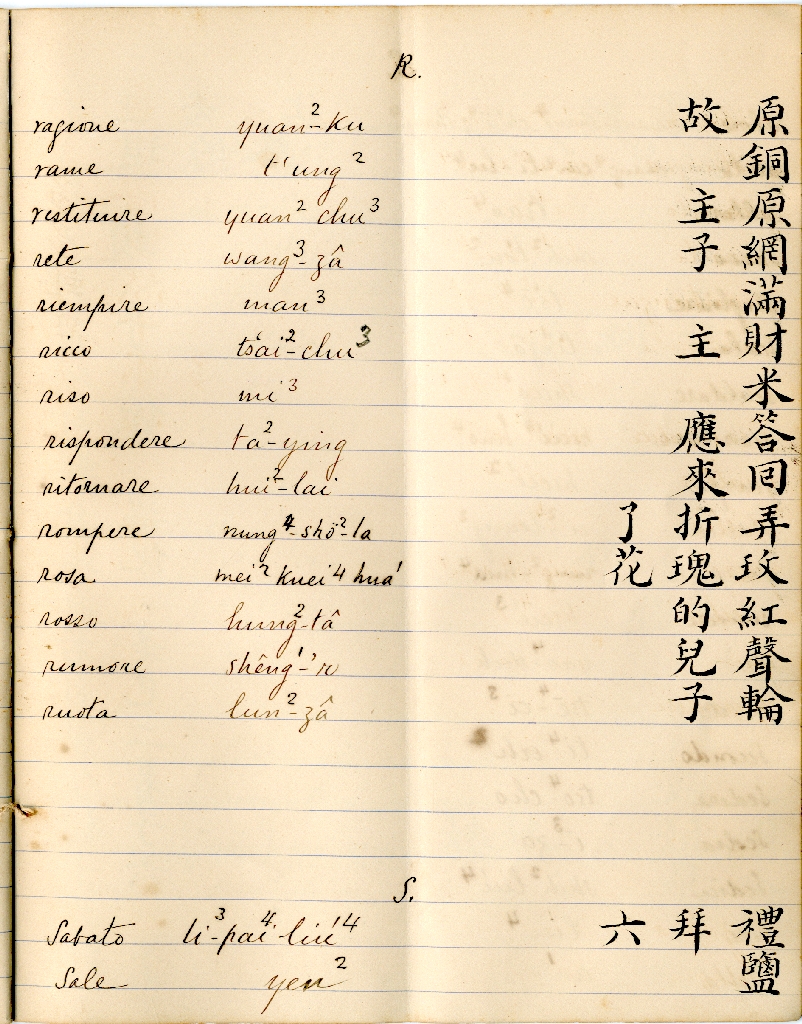 R.
ragione yuan²-ku 原故
rame t'ung² 銅
restituire yuan² chu³ 原主
rete wang³-zâ 網子
riempire man³ 滿
ricco ts'ai²-chu³ 財主
riso mi³ 米
rispondere ta²-ying 答應
ritornare hui²-lai 回來
rompere nung⁴-shö²-la 弄折了
rosa mei² kuei⁴ hua¹ 玫瑰花
rosso hung²-tâ 紅的
rumore shêng¹-'r 聲兒
ruota lun²-zâ 輪子
S.
Sabato li³-pai⁴-liu⁴ 禮拜六
Sale yen² 鹽